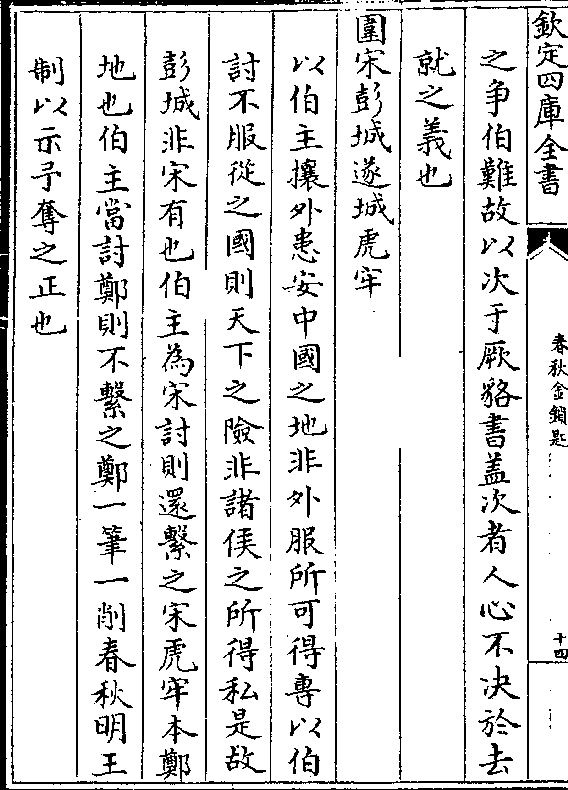 欽定四庫全書
春秋金鎖匙
十四
之争伯難故以次于厥貉書盖次者人心不决於去
就之義也
圍宋彭城遂城虎牢
以伯主攘外患安中國之地非外服所可得專以伯
討不服從之國則天下之險非諸侯之所得私是故
彭城非宋有也伯主為宋討則還繫之宋虎牢本鄭
地也伯主當討鄭則不繫之鄭一筆一削春秋明王
制以示予奪之正也